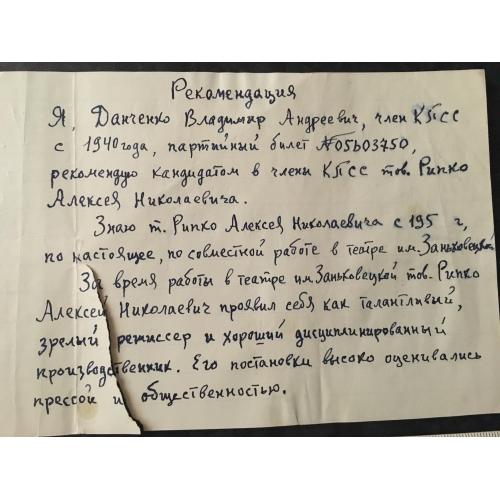 Рекомендация
Я, Данченко Владимир Андреевич, член КПСС
с 1940 года, партийный билет №05603750,
рекомендую кандидатом в члены КПСС тов. Рипко
Алексея Николаевича.
Знаю т. Рипко Алексея Николаевича с 195 г,
по настоящее, по совместной работе в театре им. Заньковецкой
За время работы в театре им. Заньковецкой тов. Рипко
Алексей Николаевич проявил себя как талантливый,
зрелый режиссер и хороший дисциплинированный
производственник. Его постановки высоко оценивались
прессой и общественностью.